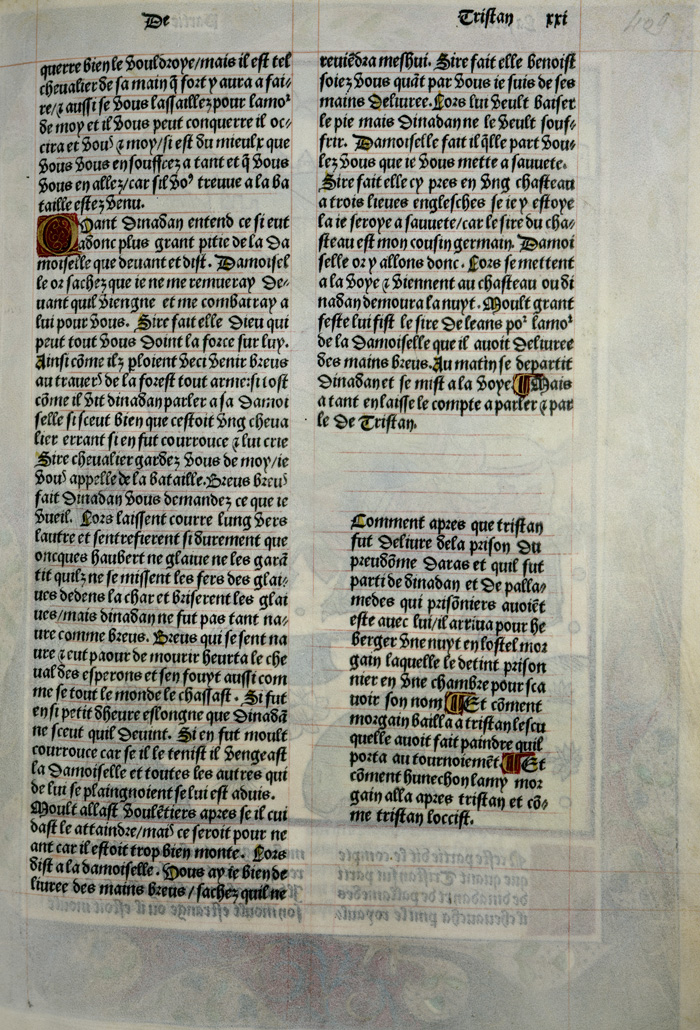 De
Tristan xxi
409
querre bien le vouldroye/mais il est tel
cheualier de sa main q̃ fort y aura a fai-
re/⁊ aussi se vous lassaillez pour lamoʳ
de moy et il vous peut conquerre il oc-
cira et vouˢ ⁊ moy/si est du mieulx que
vous vous en souffcez a tant et q̃ vous
vous en allez/car sil voꝰ treuue a la ba
taille estez venu.
Quant dinadan entend ce si eut
adonc plus grant pitie de la da
moiselle que deuant et dist. Damoisel
le or sachez que ie ne me remueray de-
uant quil viengne et me combatray a
lui pour vous. Sire fait elle dieu qui
peut tout vous doint la force sur luy.
Ainsi cõme ilz ploient veci venir breus
au trauerˢ de la forest tout arme: si tost
cõme il vit dinadan parler a sa damoi
selle si sceut bien que cestoit vng cheua
lier errant si en fut courrouce ⁊ lui crie
Sire cheualier gardez vous de moy/ie
vouˢ appelle de la bataille. Breus breuˢ
fait dinadan vous demandez ce que ie
vueil. Lors laissent courre lung vers
lautre et sentrefierent si durement que
oncques haubert ne glaiue ne les garã
tit quilz ne se missent les fers des glai-
ues dedens la char et briserent les glai
ues/mais dinadan ne fut pas tant na-
ure comme breus. Breus qui se sent na
ure ⁊ eut paour de mourir heurta le che
ual des esperons et sen fouyt aussi com
me se tout le monde le chassast. Si fut
en si petit dheure eslongne que dinadã
ne sceut quil deuint. Si en fut moult
courrouce car se il le tenist il vengeast
la damoiselle et toutes les autres qui
de lui se plaingnoient se lui est aduis.
Moult allast voulẽtiers apres se il cui
dast le attaindre/maiˢ ce seroit pour ne
ant car il estoit trop bien monte. Lors
dist a la damoiselle. Vous ay ie bien de
liuree des mains breus/sachez quil ne
reuiẽdra meshui. Sire fait elle benoist
soiez vous quãt par vous ie suis de ses
mains deliuree. Lors lui veult baiser
le pie mais dinadan ne le veult souf-
frir. Damoiselle fait il q̃lle part vou-
lez vous que ie vous mette a sauuete.
Sire fait elle cy pres en vng chasteau
a trois lieues englesches se ie y estoye
la ie seroye a sauuete/car le sire du cha-
steau est mon cousin germain. Damoi
selle or y allons donc. Lors se mettent
a la voye ⁊ viennent au chasteau ou di
nadan demoura la nuyt. Moult grant
feste lui fist le sire de leans poʳ lamoʳ
de la damoiselle que il auoit deliuree
des mains breus. Au matin se departit
dinadan et se mist a la voye ¶ Mais
a tant en laisse le compte a parler ⁊ par
le de Tristan.
Comment apres que tristan
fut deliure de la prison du
preudõme daras et quil fut
parti de dinadan et de palla-
medes qui prisõniers auoiẽt
este auec lui/il arriua pour he
berger vne nuyt en lostel mor
gain laquelle le detint prison
nier en vne chambre pour sca
uoir son nom ¶ Et cõment
morgain bailla a tristan lescu
quelle auoit fait paindre quil
porta au tournoiemẽt. ¶ Et
cõment hunechon lamy mor
gain alla apres tristan et cõ-
me tristan loccist.